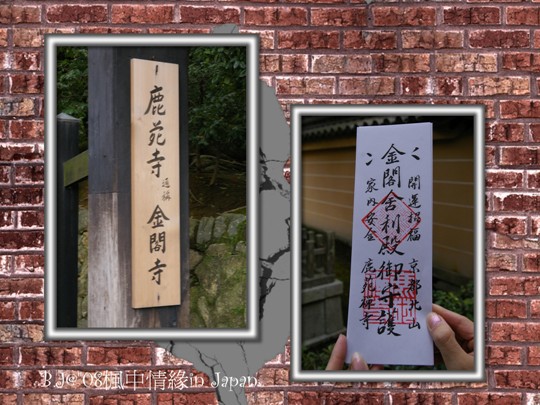 鹿苑寺
通稱
金閣寺
開運招福 京都北山
金閣舎利殿御守護
家内安全 鹿苑禅寺
B.J@'08楓中情緣in Japan